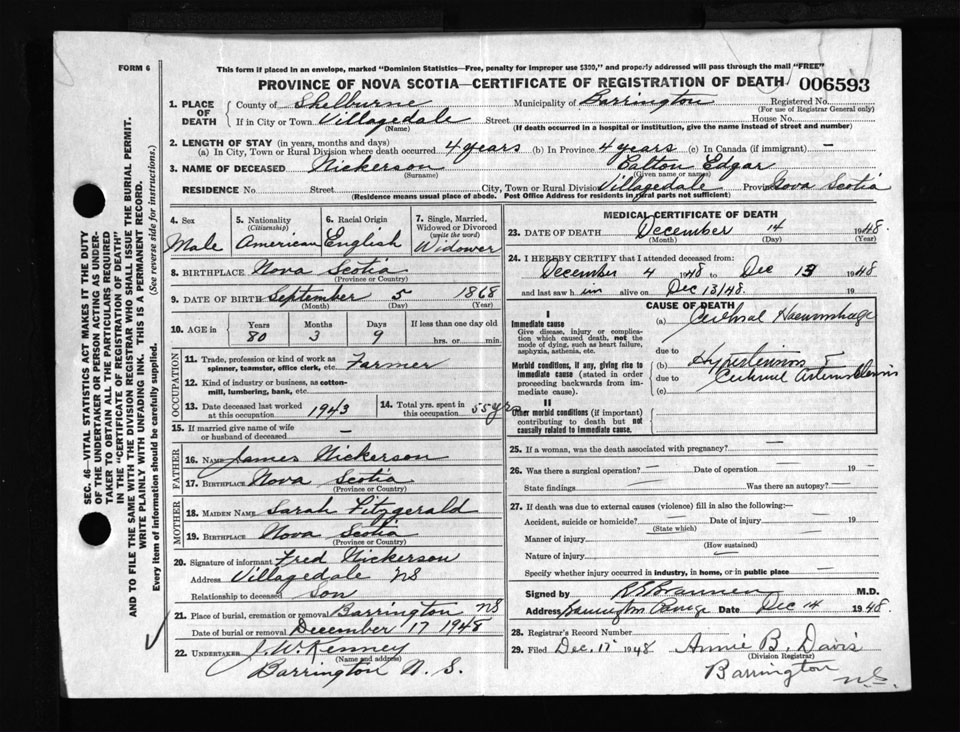 FORM 6
This form if placed in an envelope, marked "Dominion Statistics—Free, penalty for improper use $300," and properly addressed will pass through the mail "FREE"
PROVINCE OF NOVA SCOTIA—CERTIFICATE OF REGISTRATION OF DEATH 006593
1. PLACE OF DEATH
County of Shelburne Municipality of Barrington Registered No.
(For use of Registrar General only)
If in City or Town Villagedale Street House No.
(Name) (If death occurred in a hospital or institution, give the name instead of street and number)
2. LENGTH OF STAY (in years, months and days)
(a) In City, Town or Rural Division where death occurred 4 years (b) In Province 4 years (c) In Canada (if immigrant) —
3. NAME OF DECEASED Nickerson Calton Edgar
(Surname) (Given name or names)
RESIDENCE No. Street City, Town or Rural Division Villagedale Province Nova Scotia
(Residence means usual place of abode. Post Office Address for residents in rural parts not sufficient)
4. Sex
Male
5. Nationality
(Citizenship)
American
6. Racial Origin
English
7. Single, Married, Widowed or Divorced
(write the word)
Widower
8. BIRTHPLACE Nova Scotia
(Province or Country)
9. DATE OF BIRTH September 5 1868
(Month) (Day) (Year)
10. AGE in
Years Months Days If less than one day old
80 3 9 hrs. or min.
OCCUPATION
11. Trade, profession or kind of work as spinner, teamster, office clerk, etc. Farmer
12. Kind of industry or business, as cotton-mill, lumbering, bank, etc.
13. Date deceased last worked at this occupation 1943
14. Total yrs. spent in this occupation 55 yrs
15. If married give name of wife or husband of deceased —
FATHER
16. NAME James Nickerson
17. BIRTHPLACE Nova Scotia
(Province or Country)
MOTHER
18. MAIDEN NAME Sarah Fitzgerald
19. BIRTHPLACE Nova Scotia
(Province or Country)
20. Signature of informant Fred Nickerson
Address Villagedale NS
Relationship to deceased Son
21. Place of burial, cremation or removal Barrington NS
Date of burial or removal December 17 1948
22. UNDERTAKER J. W. Kenney
(Name and address)
Barrington N. S.
MEDICAL CERTIFICATE OF DEATH
23. DATE OF DEATH December 14 1948
(Month) (Day) (Year)
24. I HEREBY CERTIFY that I attended deceased from:
December 4 1948 to Dec 13 1948
and last saw him alive on Dec 13/48. 19
CAUSE OF DEATH
I
Immediate cause
Give disease, injury or complication which caused death, not the mode of dying, such as heart failure, asphyxia, asthenia, etc.
(a) Cerebral Haemorrhage
due to
Morbid conditions, if any, giving rise to immediate cause (stated in order proceeding backwards from immediate cause).
(b) Hypertension &
due to
Cerebral Arteriosclerosis
(c)
II
Other morbid conditions (if important) contributing to death but not causally related to immediate cause.
25. If a woman, was the death associated with pregnancy? —
26. Was there a surgical operation? — Date of operation — 19 —
State findings — Was there an autopsy? —
27. If death was due to external causes (violence) fill in also the following:—
Accident, suicide or homicide? — Date of injury — 19
(State which)
Manner of injury
(How sustained)
Nature of injury —
Specify whether injury occurred in industry, in home, or in public place —
Signed by M.D.
Address Date Dec 14 1948.
28. Registrar's Record Number
29. Filed Dec. 17 1948 Annie B. Davis
(Division Registrar)
Barrington N.S.
SEC. 46—VITAL STATISTICS ACT MAKES IT THE DUTY
OF THE UNDERTAKER OR PERSON ACTING AS UNDER-
TAKER TO OBTAIN ALL THE PARTICULARS REQUIRED
IN THE "CERTIFICATE OF REGISTRATION OF DEATH"
AND TO FILE THE SAME WITH THE DIVISION REGISTRAR WHO SHALL ISSUE THE BURIAL PERMIT.
WRITE PLAINLY WITH UNFADING INK. THIS IS A PERMANENT RECORD.
Every item of information should be carefully supplied. (See reverse side for instructions.)